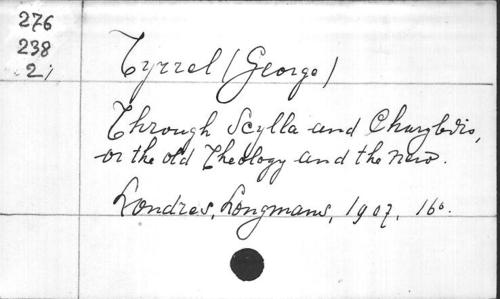 276
238
2
Tyrrel (George)
Through Scylla and Charybdis,
or the old Theology and the new.
Londres, Longmans, 1907, 16º.